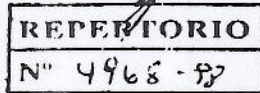 REPERTORIO
Nº 4968 - 98